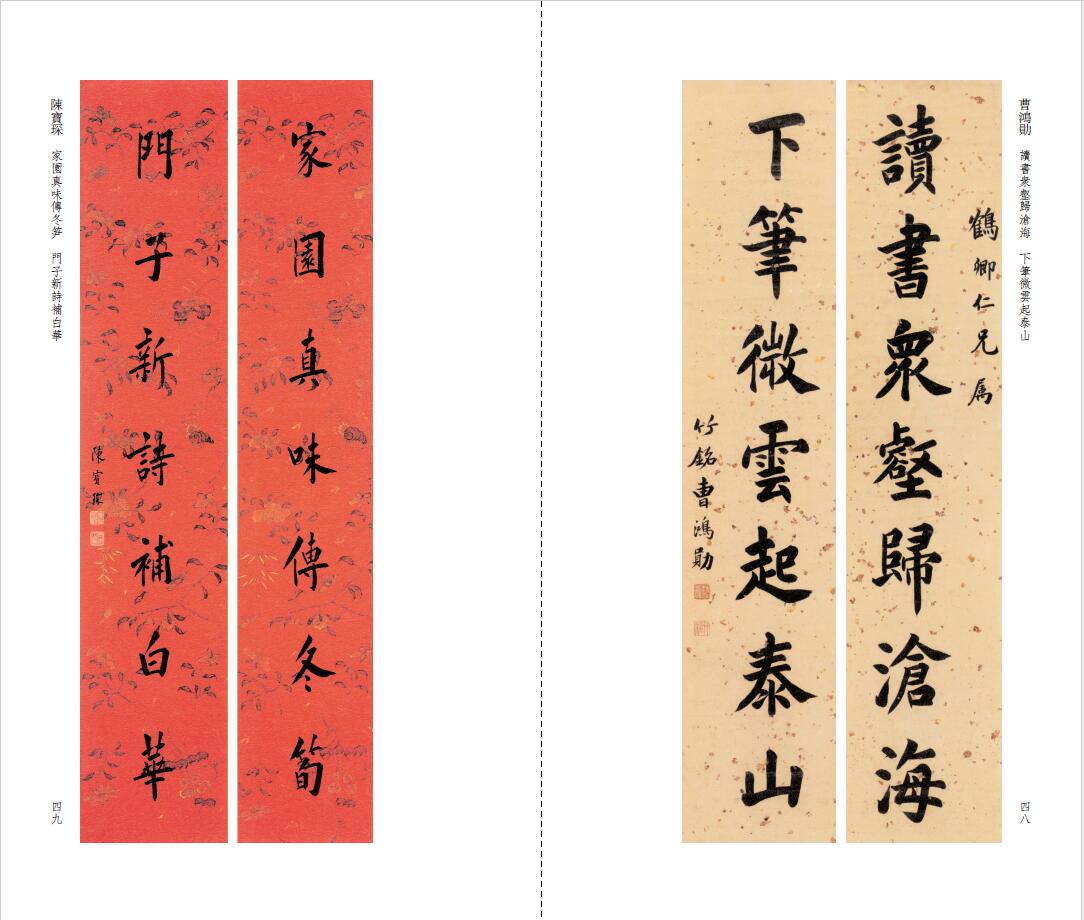 曹鴻勛　讀書衆壑歸滄海　下筆微雲起泰山
鶴卿仁兄属
讀書衆壑歸滄海
下筆微雲起泰山
竹銘曹鴻勛
四八
家園真味傳冬筍
門子新詩補白華
陳寶琛
陳寶琛　家園真味傳冬笋　門子新詩補白華
四九